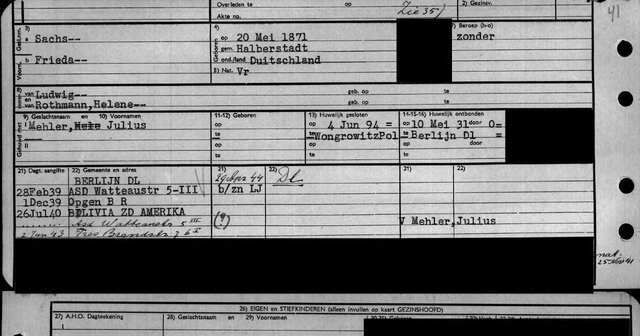 Overleden te op
2) Gezinsv.
Akte no.
Zie 35)
41
3)
4)
7) Beroep (h-o)
a Sachs--
op 20 Mei 1871
zonder
Geboren
gem. Halberstadt
b Frieda--
prov./land Duitschland
8) Nat. Vr
van Ludwig--
geb. op te
en van Rothmann,Helene--
geb. op te
9) Geslachtsnaam en 10) Voornamen
11-12) Geboren
13) Huwelijk gesloten
14-15-16) Huwelijk ontbonden
Gehuwd met
Mehler, Julius
op
te
op 4 Jun 94 =
te WongrowitzPol
op 10 Mei 31 door O=
te Berlijn Dl door
21) Dagt. aangifte
22) Gemeente en adres
21)
22)
21)
22)
BERLIJN DL
Dl
28Feb39 ASD Watteaustr 5-III
b/zn LJ
1Dec39 Opgen B R
26Jul40 BOLIVIA ZD AMERIKA
(?)
V Mehler,Julius
Asd Watteaustr 5 III
nat.
25 Nov 41
26) EIGEN en STIEFKINDEREN (alleen invullen op kaart GEZINSHOOFD)
27) A.H.O. Dagteekening
28) Geslachtsnaam en 29) Voornamen
1